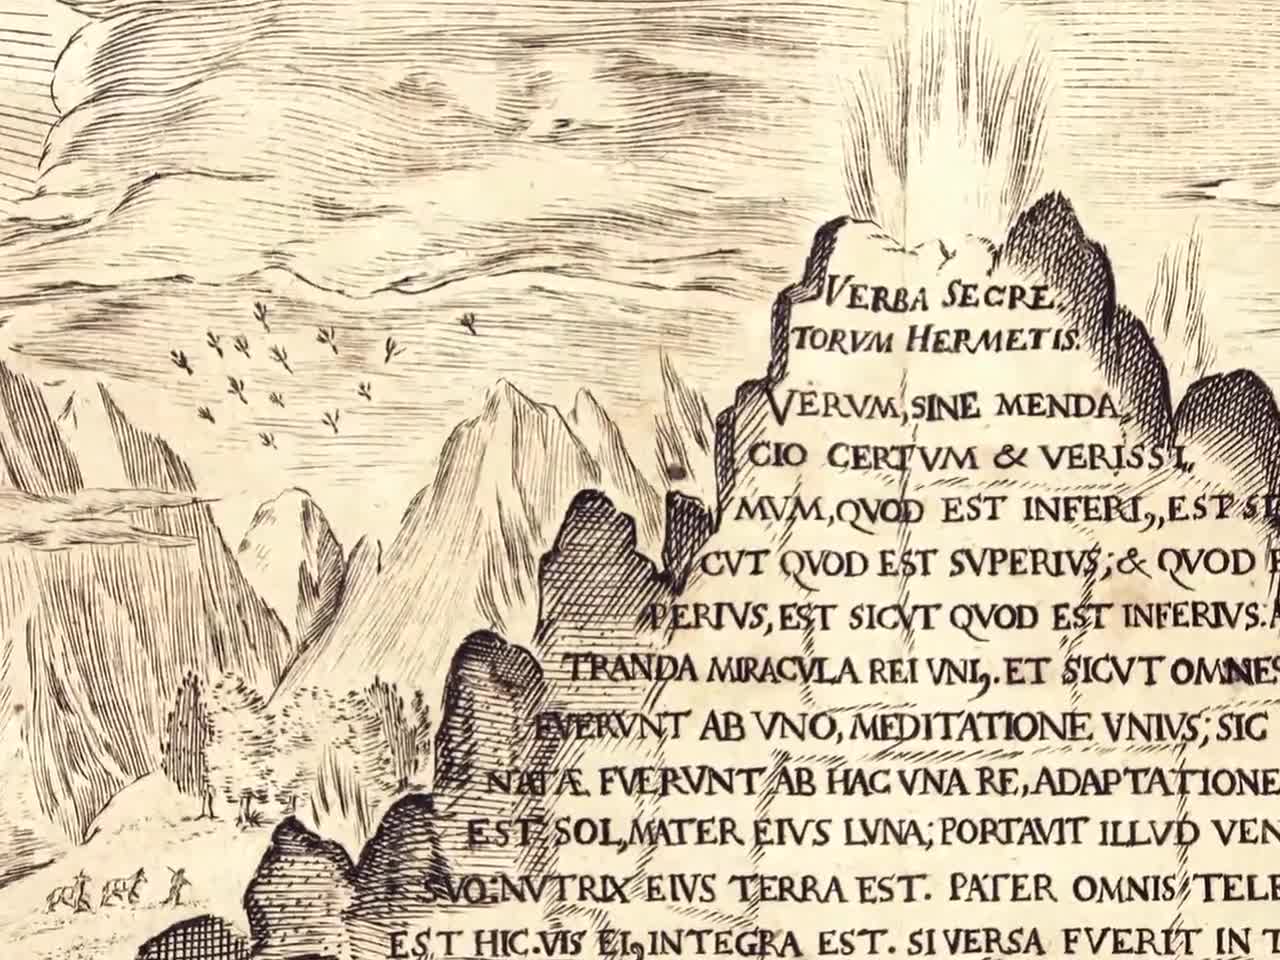 VERBA SECRE
TORVM HERMETIS.
VERVM, SINE MENDA
CIO CERTVM & VERISSI,
MVM, QVOD EST INFERI9, EST SI
CVT QVOD EST SVPERIVS; & QVOD
PERIVS, EST SICVT QVOD EST INFERIVS.
TRANDA MIRACVLA REI VNI9. ET SICVT OMNES
FVERVNT AB VNO, MEDITATIONE VNIVS; SIC
NATÆ FVERVNT AB HAC VNA RE, ADAPTATIONE
EST SOL, MATER EIVS LVNA; PORTAVIT ILLVD VEN
SVO: NVTRIX EIVS TERRA EST. PATER OMNIS TELE
EST HIC. VIS EI9 INTEGRA EST. SI VERSA FVERIT IN T